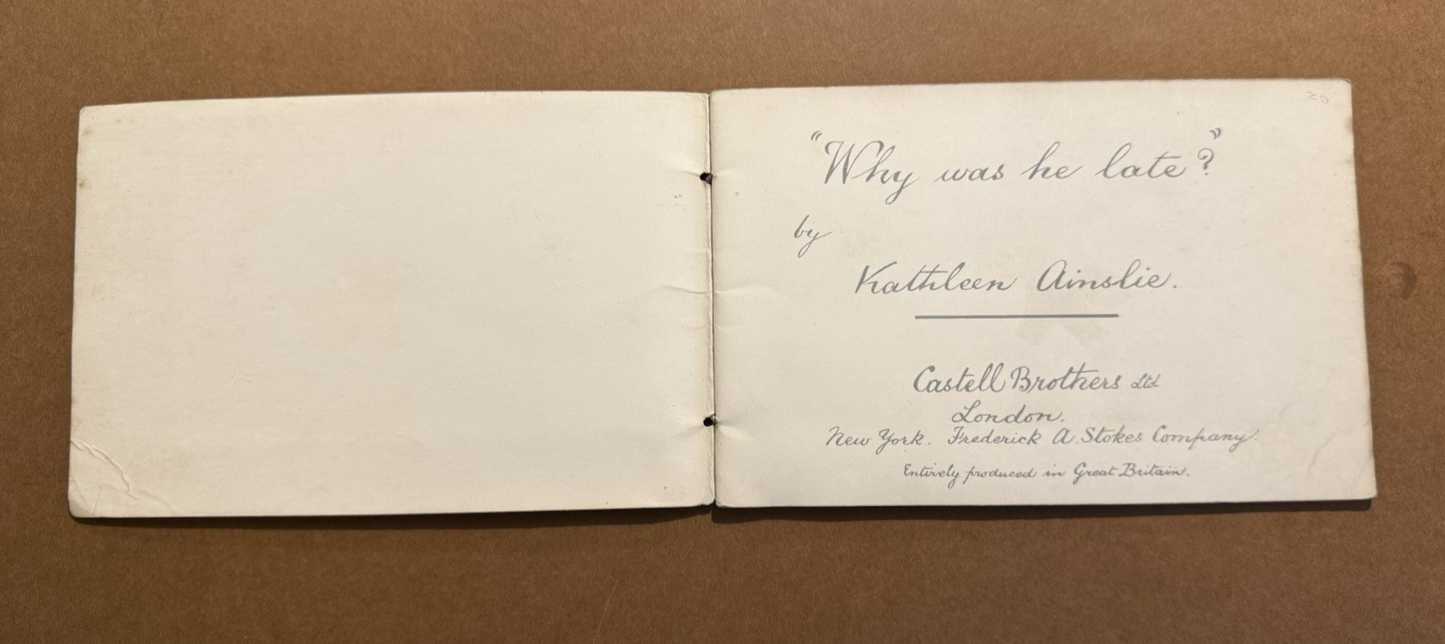 20
"Why was he late"?
by
Kathleen Ainslie.
Castell Brothers Ltd
London.
New York. Frederick A. Stokes Company.
Entirely produced in Great Britain.